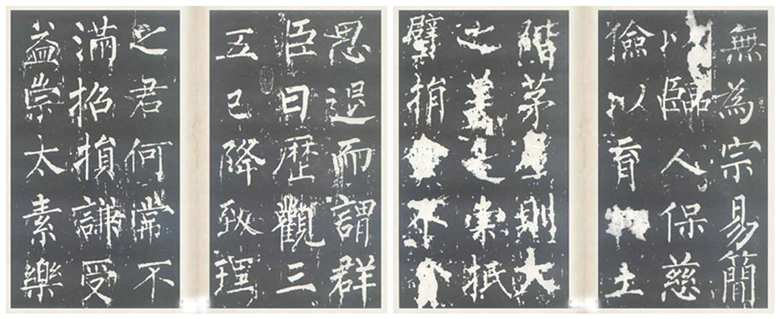 無為宗易簡
以臨人保慈
儉以育土
階茅則大
之美抵
璧捐金不
思退而謂群
臣曰歷觀三
五已降致理
之君何常不
滿招損謙受
益崇太素樂